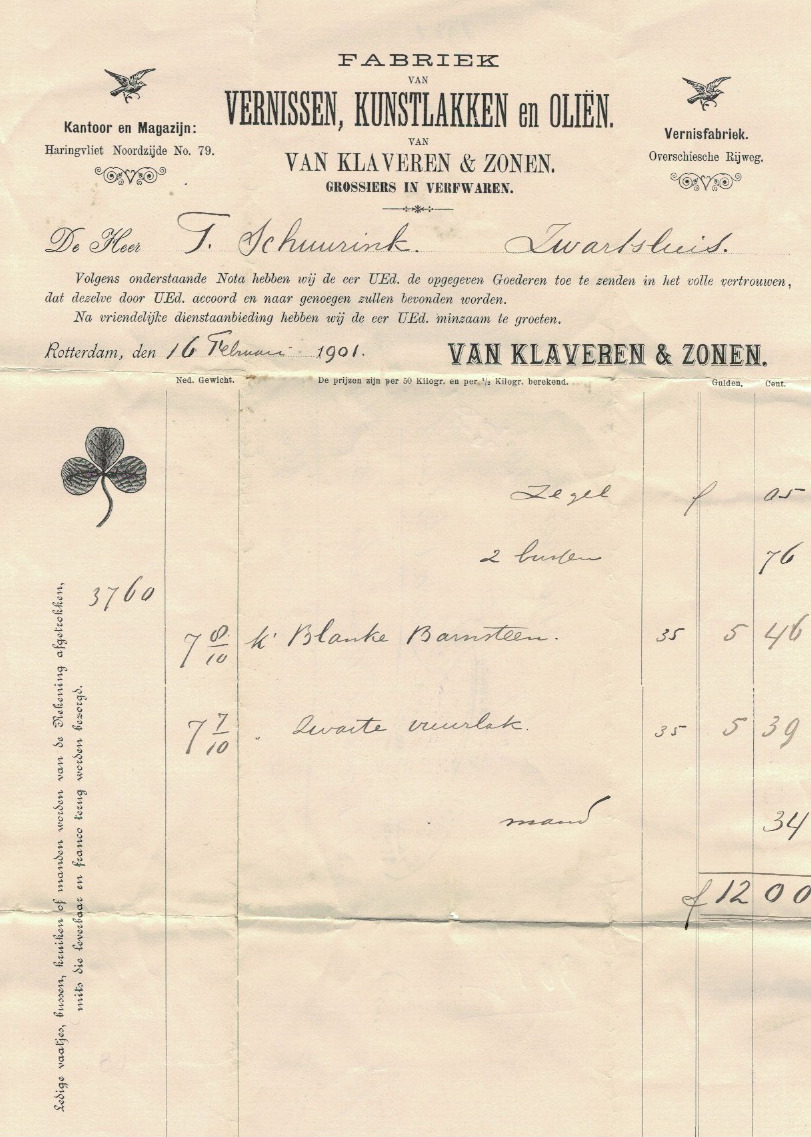 FABRIEK
VAN
VERNISSEN, KUNSTLAKKEN en OLIËN.
VAN
VAN KLAVEREN & ZONEN.
GROSSIERS IN VERFWAREN.
Kantoor en Magazijn:
Haringvliet Noordzijde No. 79.
Vernisfabriek.
Overschiesche Rijweg.
De Heer T. Schuurink. Zwartsluis.
Volgens onderstaande Nota hebben wij de eer UEd. de opgegeven Goederen toe te zenden in het volle vertrouwen,
dat dezelve door UEd. accoord en naar genoegen zullen bevonden worden.
Na vriendelijke dienstaanbieding hebben wij de eer UEd. minzaam te groeten.
Rotterdam, den 16 Februari 1901.
VAN KLAVEREN & ZONEN.
Ned. Gewicht. De prijzen zijn per 50 Kilogr. en per ½ Kilogr. berekend. Gulden. Cent.
Zegel f 05
2 bussen 76
3760
7 8/10 k° Blanke Barnsteen. 35 5 46
7 7/10 " Zwarte vuurlak. 35 5 39
mand 34
f 12 00
Ledige vaatjes, bussen, kruiken of manden worden van de Rekening afgetrokken,
mits die leverbaar en franco terug worden bezorgd.